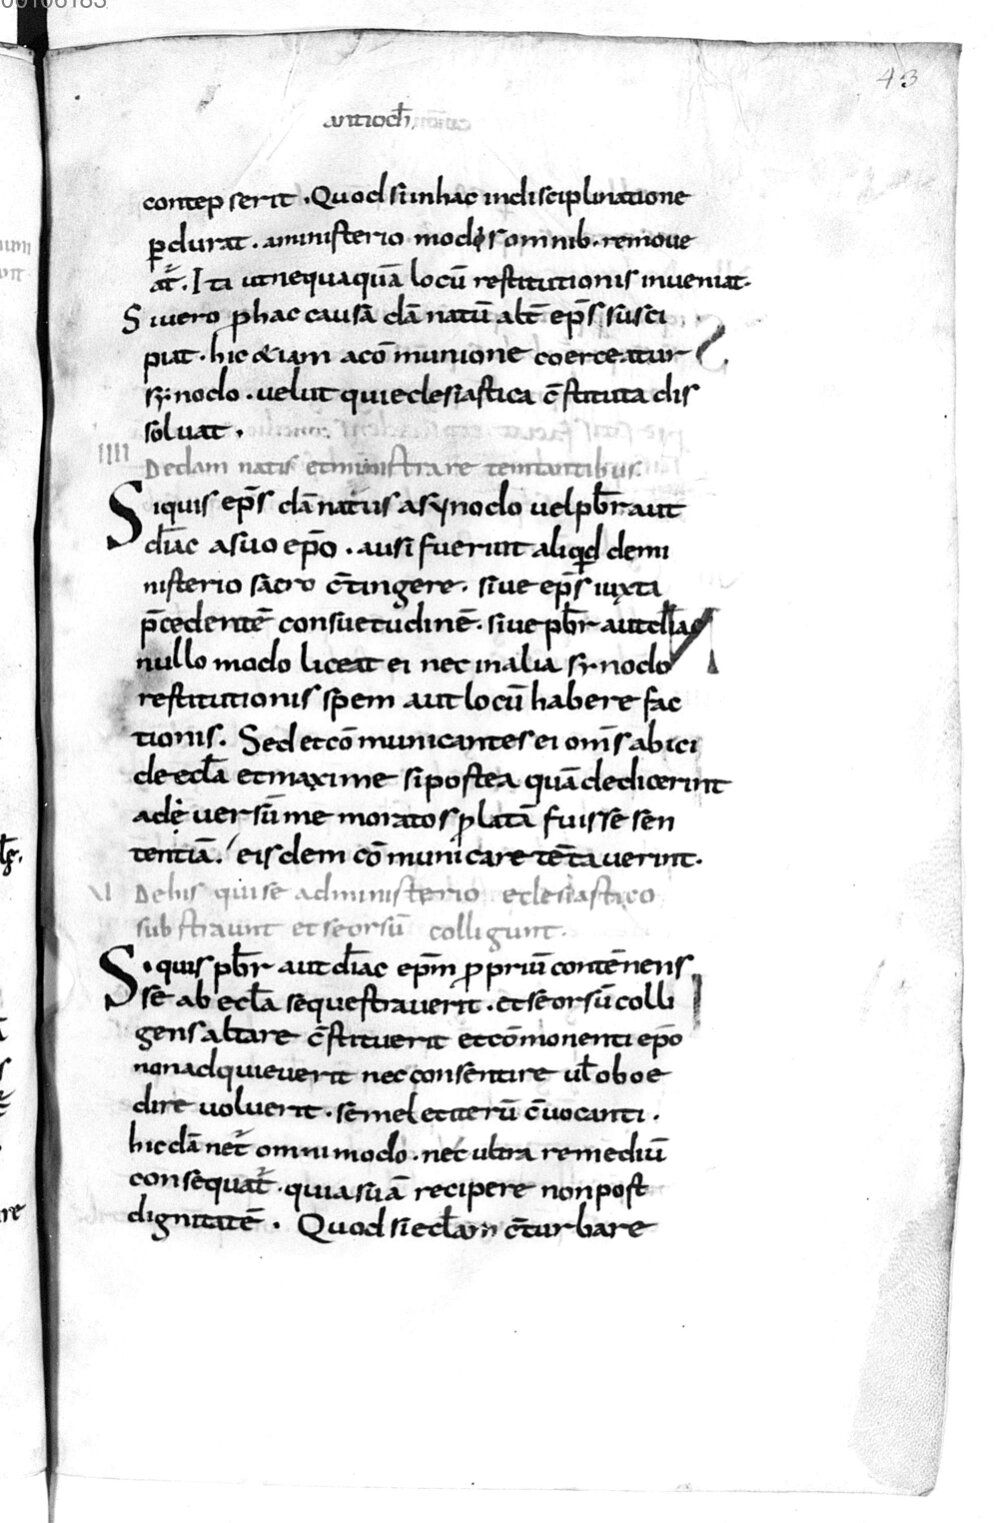 43
antioch̄
contepserit. Quod si in hac indisciplinatione
ꝑdurat. aministerio modis omnib. remoue
at᷑. Ita ut nequaquā locū restitutionis inueniat.
Si uero ꝓ hac causā dānatū alt̄ ep̄s susci
piat. hic &iam a cōmunione coerceatur
sẏnodo. uelut qui eclesiastica c̄stituta dis
soluat.
IIII De dam natis et ministrare temtantibus.
Siquis ep̄s dānatus a sẏnodo uel pb̄r aut
diāc a suo ep̄o. ausi fuerint aliqd de mi
nisterio sacro c̄tingere. siue ep̄s iuxta
p̄cedentē consuetudinē. siue pb̄r aut diac
nullo modo liceat ei nec in alia sẏnodo
restitutionis spem aut locū habere fac
tionis. Sed et cōmunicantes ei om̄s abici
de ecl̄a et maxime si postea quā dedicerint
adę uersūme moratos ꝓlatā fuisse sen
tentiā. eisdem cōmunicare tēta uerint.
VI De his qui se a dministerio eclesiastico
substraunt et seorsū colligunt.
Siquis pb̄r aut diāc ep̄m ꝓprium contēnens
se ab ecl̄a sequestrauerit. et seorsū colli
gens altare c̄stituerit et cōmonenti ep̄o
non adquieuerit nec consentire ul̄ oboe
dire uoluerit. semel et iterū c̄uocanti.
hic dānet᷑ omnimodo. nec ultra remediū
consequat᷑. quia suā recipere non post
dignitatē. Quod si ecl̄am c̄turbare